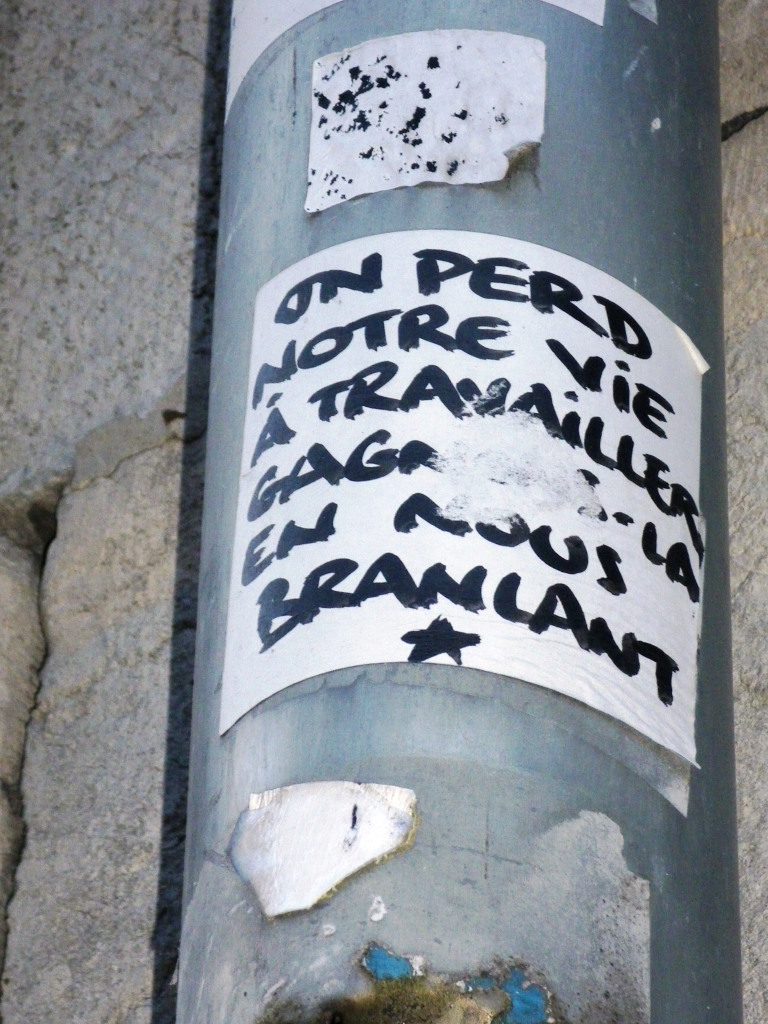 ON PERD
NOTRE VIE
À TRAVAILLER
LA
EN NOUS
BRANLANT